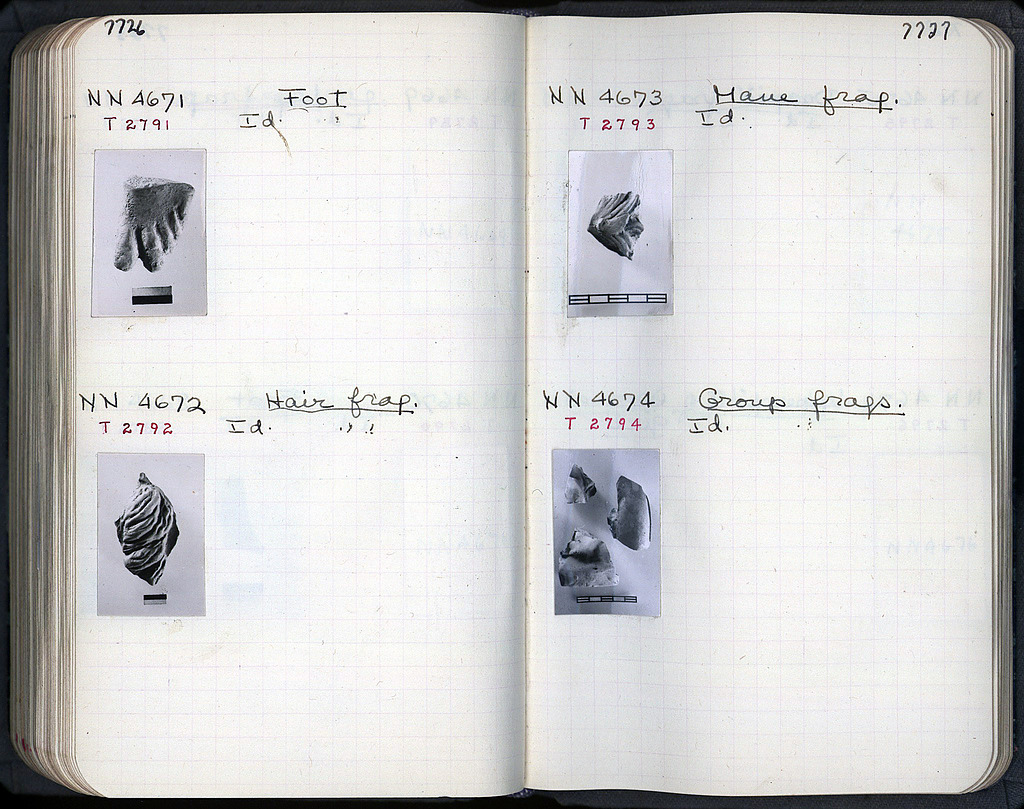 7726
NN 4671 Foot
T 2791 Id.
NN 4672 Hair frag.
T 2792 Id.
7727
NN 4673 Mane frag.
T 2793 Id.
NN 4674 Group frags.
T 2794 Id.